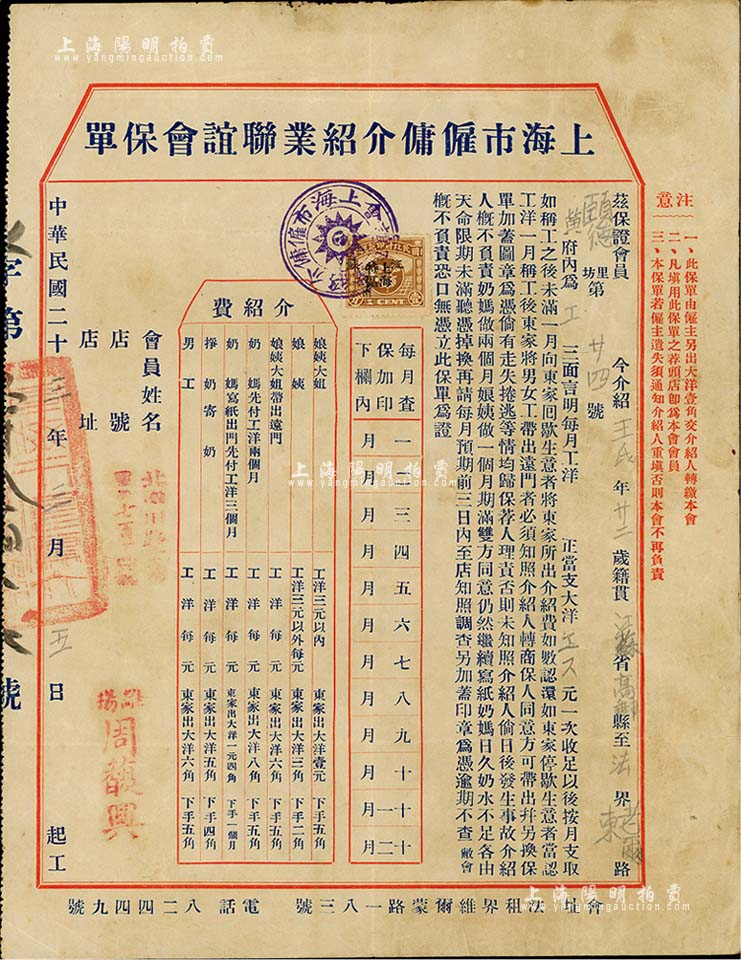 上海陽明拍賣
www.yangmingauction.com
上海市僱傭介紹業聯誼會保單
注意
一、此保單由僱主另出大洋壹角交介紹人轉繳本會
二、凡填用此保單之荐頭店卽爲本會會員
三、本保單若僱主遺失須通知介紹人重塡否則本會不再負責
茲保證會員 今介紹 王氏 年 廿二 歲籍貫 江蘇 省 高郵 縣至 法 界 路
頤德 里坊第 廿四 號
黄 府內爲 工 三面言明每月工洋 正當支大洋 元一次收足以後按月支取
如稱工之後未滿一月向東家囘歇生意者將東家所出介紹費如數認還如東家停歇生意者當認
工洋一月稱工後東家將男女工帶出遠門者必須知照介紹人轉商保人同意方可帶出幷另換保
單加蓋圖章爲憑倘有走失捲逃等情均歸保荐人理責否則未知照介紹人倘日後發生事故介紹
人槪不負責奶媽做兩個月娘姨做一個月期滿雙方同意仍然繼續寫紙奶媽日久奶水不足各由
天命限期未滿聽憑掉換再請每月預期前三日內至店知照調查另加蓋印章爲憑逾期不查 敝會
槪不負責恐口無憑立此保單爲證
每月查保加印下欄內
一月
二月
三月
四月
五月
六月
七月
八月
九月
十月
十一月
十二月
介紹費
娘姨大姐 工洋三元以內 東家出大洋壹元 下手五角
娘姨 工洋三元以外每元 東家出大洋三角 下手二角
娘姨大姐帶出遠門 工洋每元 東家出大洋六角 下手五角
奶媽先付工洋兩個月 工洋每元 東家出大洋八角 下手五角
奶媽寫紙出門先付工洋三個月 工洋每元 東家出大洋一元四角 下手一個月
掙奶寄奶 工洋每元 東家出大洋五角 下手四角
男工 工洋每元 東家出大洋六角 下手五角
會員姓名
店號
店址
周馥興
中華民國二十三年三月五日 起工
字第 號
會址 法租界維爾蒙路一八三號 電話 八二四四九號
上海陽明拍賣
www.yangmingauction.com
上海陽明拍賣
www.yangmingauction.com